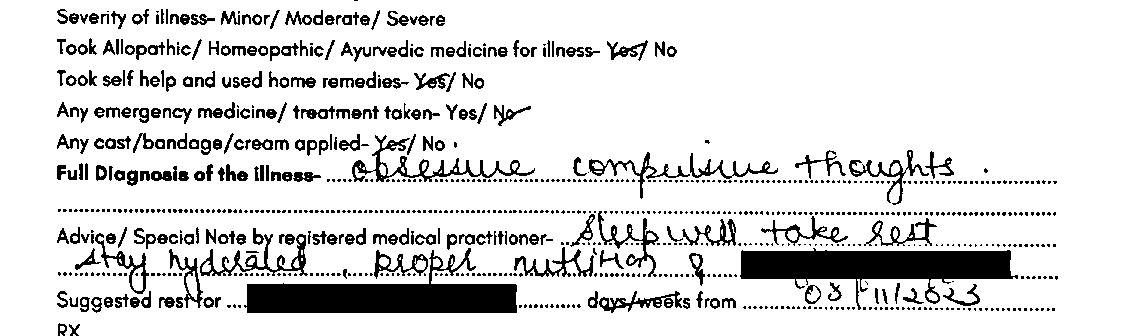 Severity of illness- Minor/ Moderate/ Severe
Took Allopathic/ Homeopathic/ Ayurvedic medicine for illness- Yes/ No
Took self help and used home remedies- Yes/ No
Any emergency medicine/ treatment taken- Yes/ No
Any cast/bandage/cream applied- Yes/ No
Full Diagnosis of the illness- obsessive compulsive thoughts .
Advice/ Special Note by registered medical practitioner- sleep well take rest
stay hydrated , proper nutrition &
Suggested rest for ............ days/weeks from 03/11/2023
RX